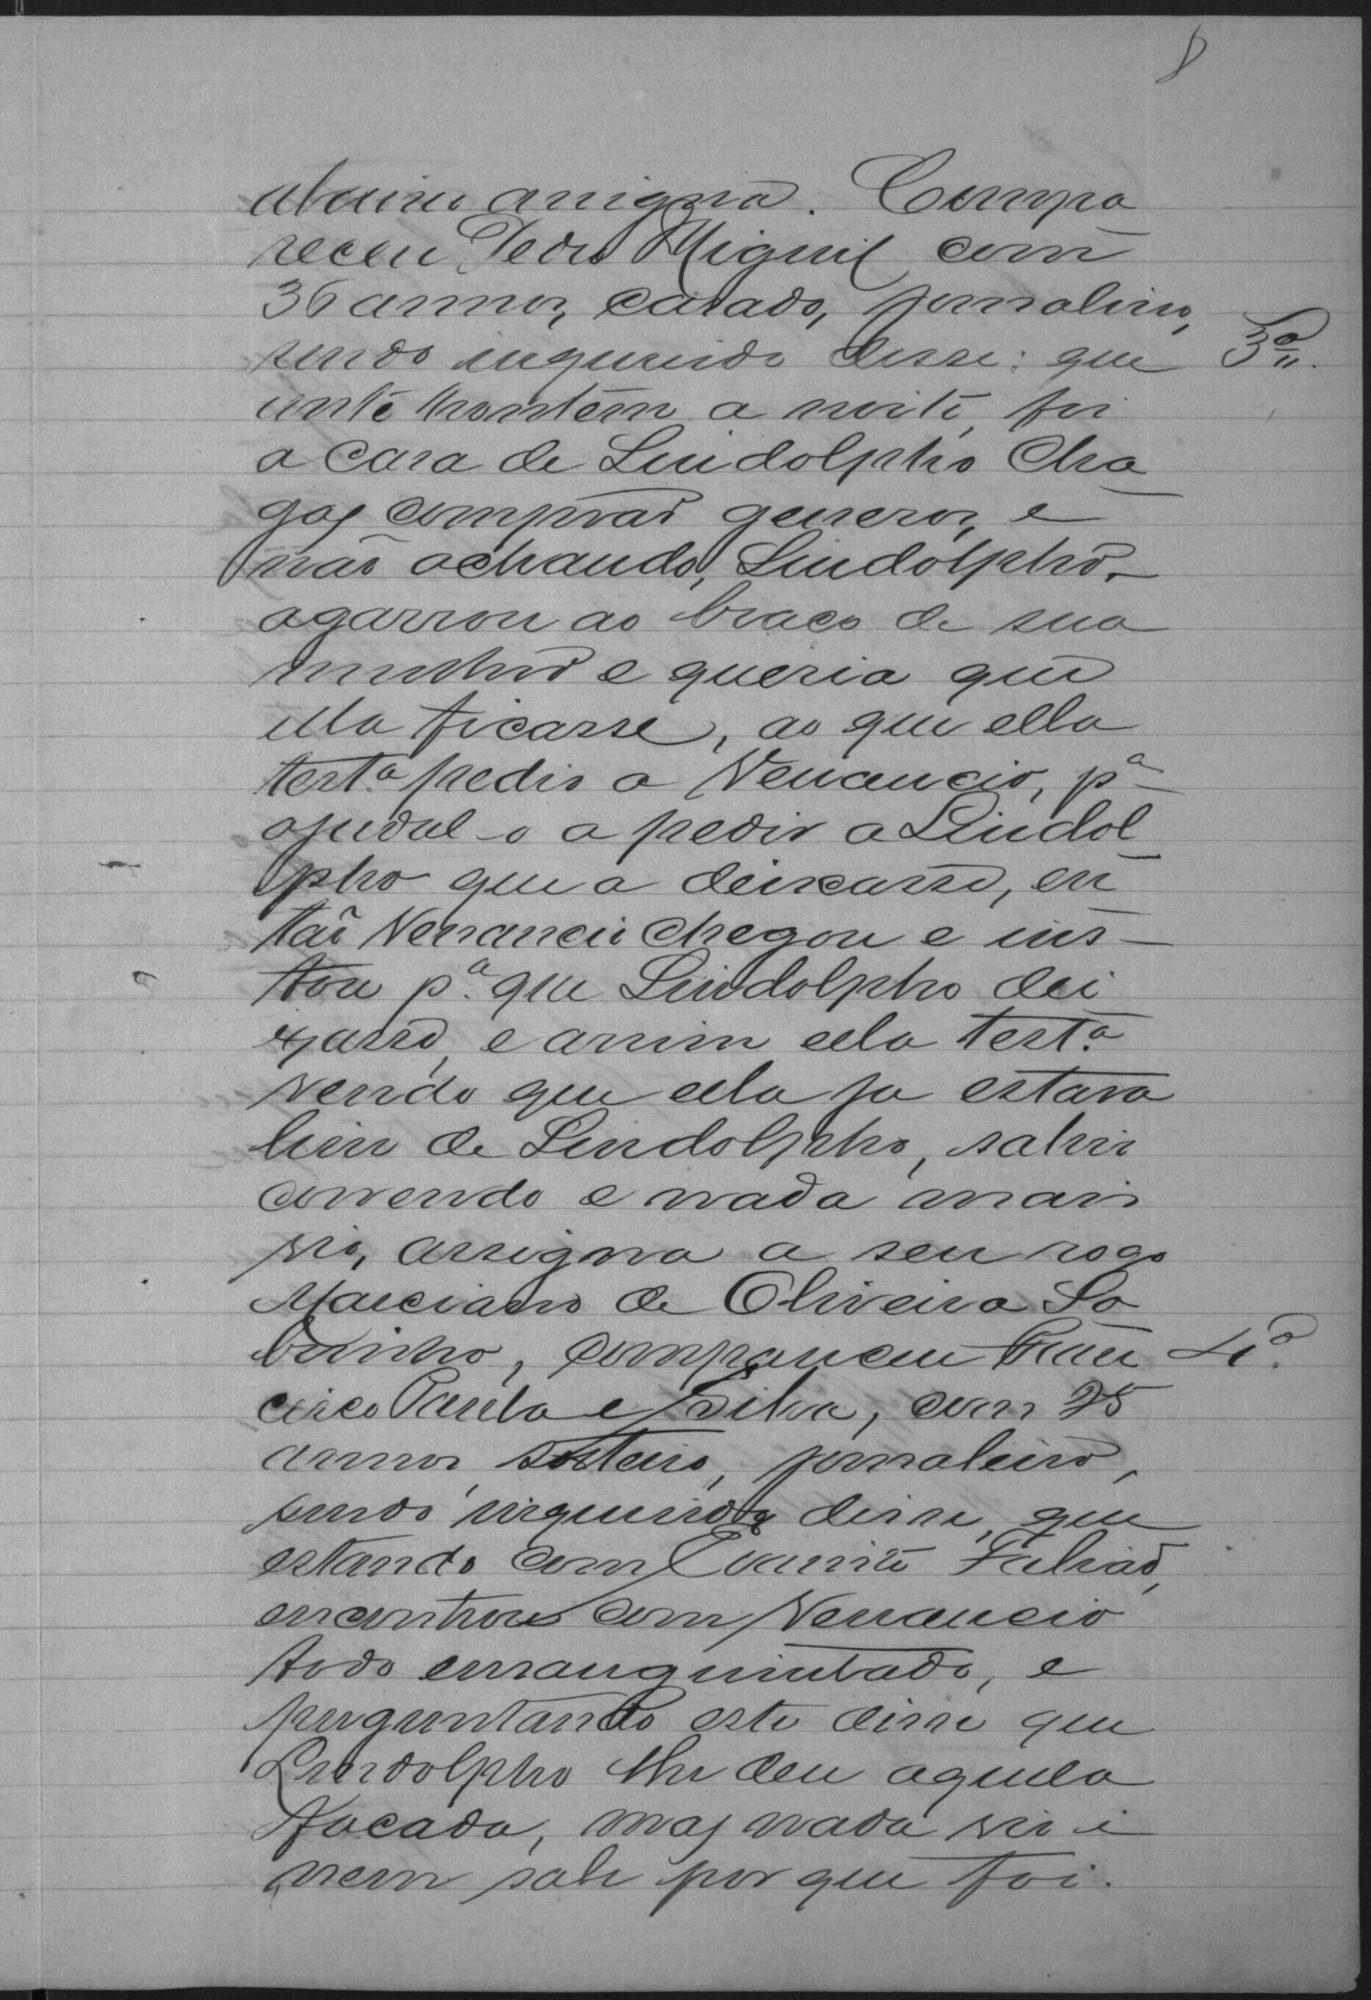 8
abaixo assigna. Compa
receu Pedro Miguel com
36 annos, casado, jornaleiro,
sendo inquerido disse: que 3ª
ante hontem a noite, foi
a casa de Lindolpho Cha
gas comprar generos, e
não achando, Lindolpho
agarrou ao braço de sua
mulher e queria que
ella ficasse, ao que ella
testª pedio a Venancio, pª
ajudal-o a pedir a Lindol
pho que a deixasse, en
tão Venancio chegou e ins-
tou pª que Lindolpho dei
xasse, e assim ella testª
vendo que ella ja estava
livre de Lindolpho, sahio
correndo e nada mais
vio, assigna a seu rogo
Marciano de Oliveira So
brinho, compareceu Fran 4ª
cisco Paula e Silva, com 25
annos, solteiro, jornaleiro,
sendo inquerido disse, que
estando com Evaristo Fabião,
encontrou com Venancio
todo ensanguintado, e
perguntando este disse que
Lindolpho lhe deu aquela
facada, mas nada vio e
nem sabe por que foi.